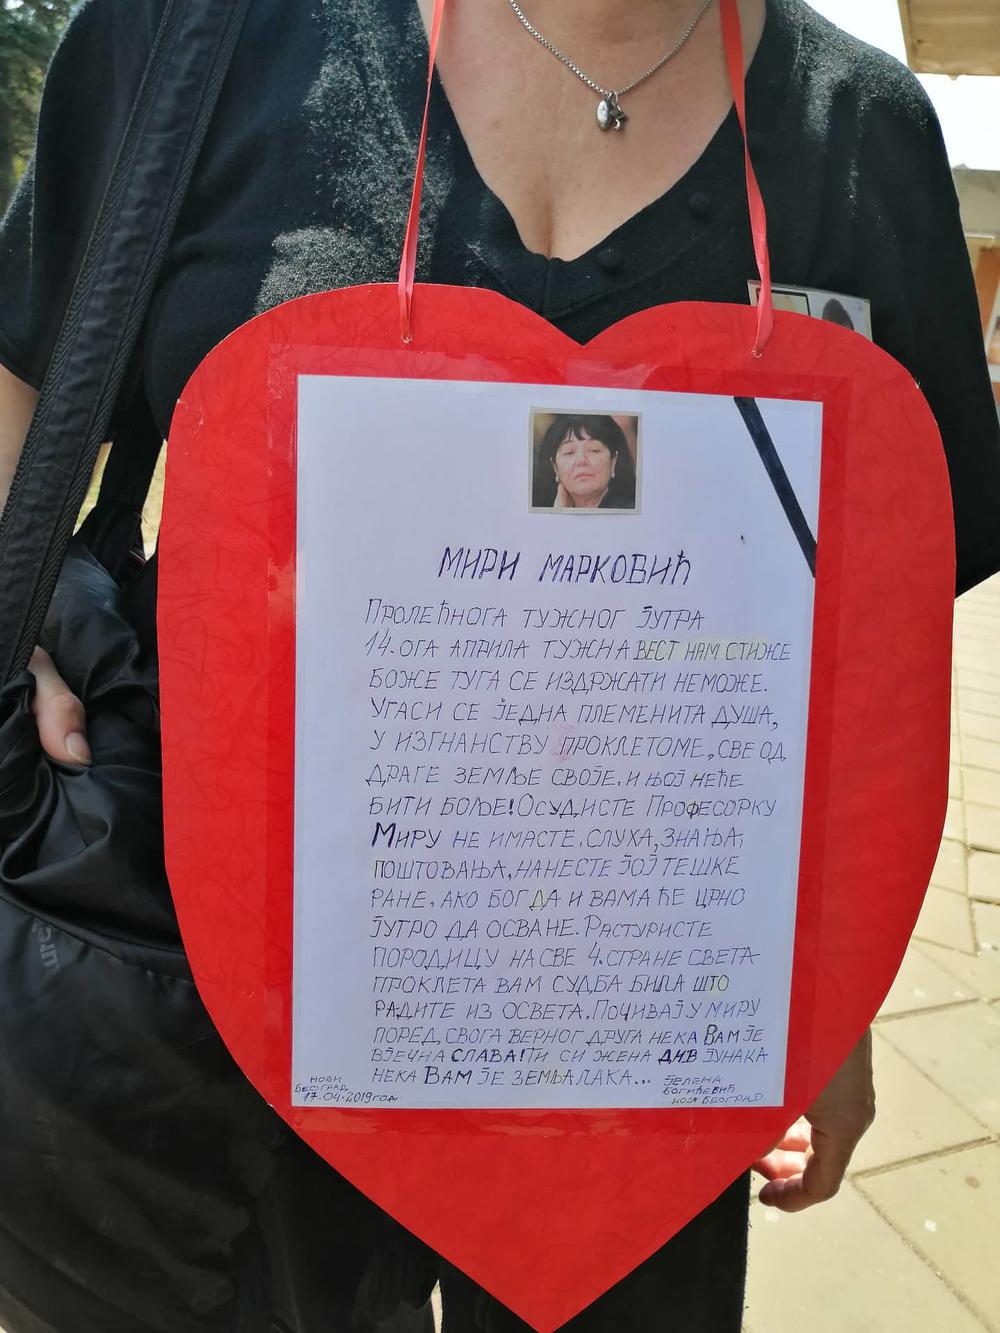 МИРИ МАРКОВИЋ
ПРОЛЕЋНОГА ТУЖНОГ ЈУТРА
14.ОГА АПРИЛА ТУЖНА ВЕСТ НАМ СТИЖЕ
БОЖЕ ТУГА СЕ ИЗДРЖАТИ НЕМОЖЕ.
УГАСИ СЕ ЈЕДНА ПЛЕМЕНИТА ДУША,
У ИЗГНАНСТВУ ПРОКЛЕТОМЕ, СВЕ ОД
ДРАГЕ ЗЕМЉЕ СВОЈЕ. И ЊОЈ НЕЋЕ
БИТИ БОЉЕ! ОСУДИСТЕ ПРОФЕСОРКУ
МИРУ НЕ ИМАСТЕ, СЛУХА, ЗНАЊА,
ПОШТОВАЊА, НАНЕСТЕ ЈОЈ ТЕШКЕ
РАНЕ, АКО БОГ ДА И ВАМА ЋЕ ЦРНО
ЈУТРО ДА ОСВАНЕ. РАСТУРИСТЕ
ПОРОДИЦУ НА СВЕ 4. СТРАНЕ СВЕТА
ПРОКЛЕТА ВАМ СУДБА БИЛА ШТО
РАДИТЕ ИЗ ОСВЕТА. ПОЧИВАЈ У МИРУ
ПОРЕД СВОГА ВЕРНОГ ДРУГА НЕКА ВАМ ЈЕ
ВЈЕЧНА СЛАВА! ТИ СИ ЖЕНА ДИВ ЈУНАКА
НЕКА ВАМ ЈЕ ЗЕМЉА ЛАКА...
НОВИ
БЕОГРАД
17.04.2019 год.
ЈЕЛЕНА
БОГИЋЕВИЋ
НОВИ БЕОГРАД